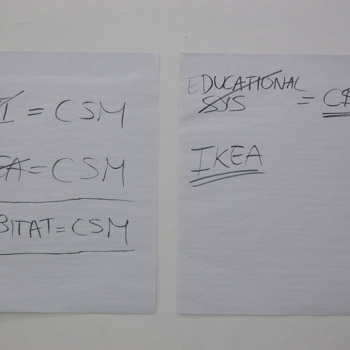 = CSM
= CSM
BITAT = CSM
EDUCATIONAL
SYS =
IKEA